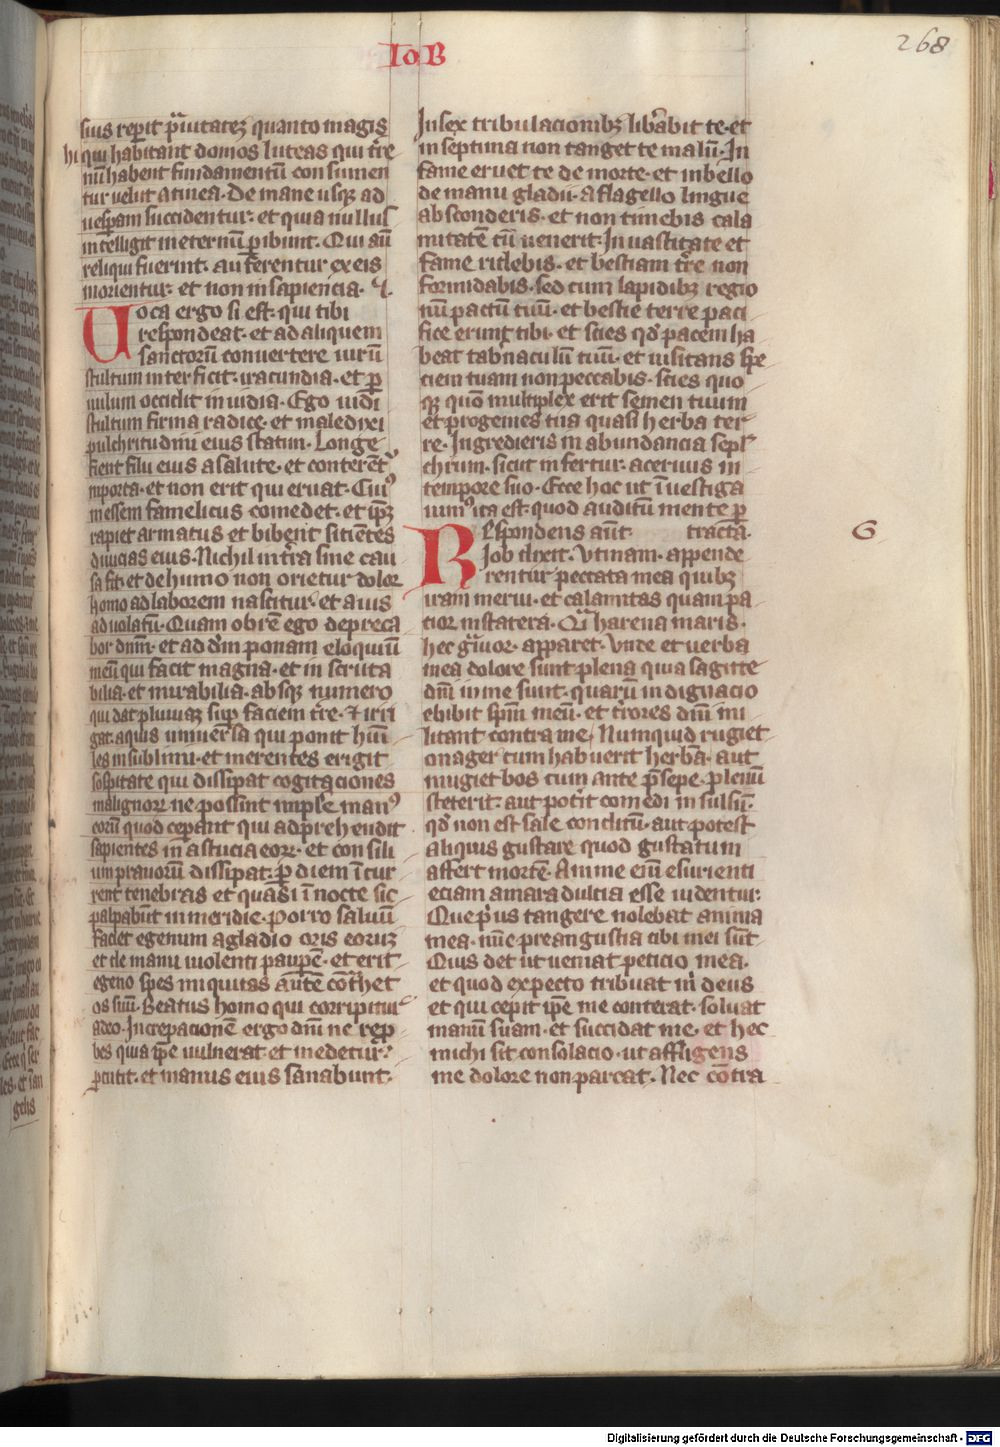 IoB
268
sius reperit prauitatez quanto magis
hi qui habitant domos luteas qui tr̄re
nū habent fundamentū consumen
tur velut a tinea. De mane usqz ad
uesp̄am succidentur. et quia nullus
intelligit ineternū ꝑibunt. Qui aūt
reliqui fuerint. auferentur ex eis
morientur. et non in sapiencia.
Uoca ergo si est. qui tibi
respondeat. et ad aliquem
sanctorū conuertere uirū
stultum interficit. iracundia. et ꝑ
uulum occidit inuidia. Ego uidi
stultum firma radice. et maledixi
pulchritudini eius statim. Longe
fient filii eius a salute. et conterēt̉
in porta. et non erit qui eruat. Cui⁹
messem famelicus comedet. et ip̄z
rapiet armatus et bibent sitientes
diuicias eius. Nichil in tr̄ra sine cau
sa fit. et de humo non orietur dolor
homo ad laborem nascitur. et auis
ad uolatū. Quam obrē ego depreca
bor dnm̄. et ad dm̄ ponam eloquiū
meū qui facit magna. et inscruta
bilia. et mirabilia. absqz numero
qui dat pluuiaz sup faciem tr̄re. & irri
gat. aquis uniuersa qui ponit humi
les in sublimi. et merentes erigit
sospitate qui dissipat cogitaciones
malignoꝝ ne possint implere man⁹
eorū quod ceperant qui adprehendit
sapientes in astucia eoꝝ. et consili
um prauorū dissipat. ꝑ diem īcur
rent tenebras et quasi ī nocte sic
palpabūt in meridie. Porro saluū
faciet egenum a gladio oris eoruz
et de manu uiolenti paupē. et erit
egeno spes iniquitas autē cōthet
os suū. Beatus homo qui corripitur
a deo. Increpacionē ergo dnī ne repro
bes quia ip̄e uulnerat. et medetur.
ꝑcutit. et manus eius sanabunt.
In sex tribulacionibz lib̄abit te. et
in septima non tanget te malū. In
fame eruet te de morte. et in bello
de manu gladii. a flagello lingue
absconderis. et non timebis cala
mitatē cū uenerit. In uastitate et
fame ridebis. et bestiam tr̄re non
formidabis. sed cum lapidibz regio
nū pactū tuū. et bestie terre paci
fice erunt tibi. et scies qd̄ pacem ha
beat tab̄naculū tuū. et uisitans spe
ciem tuam non peccabis. scies quo
qz quō multiplex erit semen tuum
et progenies tua quasi herba ter
re. Ingredieris in abundancia sepl
chrum. sicut infertur. aceruus in
tempore suo. Ecce hoc ut īuestiga
uim⁹ ita est. quod auditū mente ꝑ
tracta.
Respondens aūt
Job dixit. Vtinam. appende
rentur peccata mea quibz
iram merui. et calamitas quam pa
tior in statera. Qi harena maris.
hec grauior. apparet. Vnde et uerba
mea dolore sunt plena quia sagitte
dnī in me sunt. quarū indignacio
ebibit spm̄ meū. et tr̄rores dnī mi
litant contra me. Numquid rugiet
onager cum habuerit herbā. aut
mugiet bos cum ante p̄sepe. plenū
steterit. aut potit comedi insulsū.
qd̄ non est sale conditū. aut potest
aliquis gustare quod gustatum
affert mortē. Anime eim̄ esurienti
eciam amara dulcia esse uidentur.
Que pius tangere nolebat anima
mea. nūc pre angustia cibi mei sūt.
Quis det ut ueniat peticio mea.
et quod expecto tribuat m̄ deus
et qui cepit ip̄e me conterat. soluat
manū suam. et succidat me. et hec
michi sit consolacio. ut affligens
me dolore non parcat. Nec cōtra
6
gelis
Digitalisierung gefördert durch die Deutsche Forschungsgemeinschaft - DFG